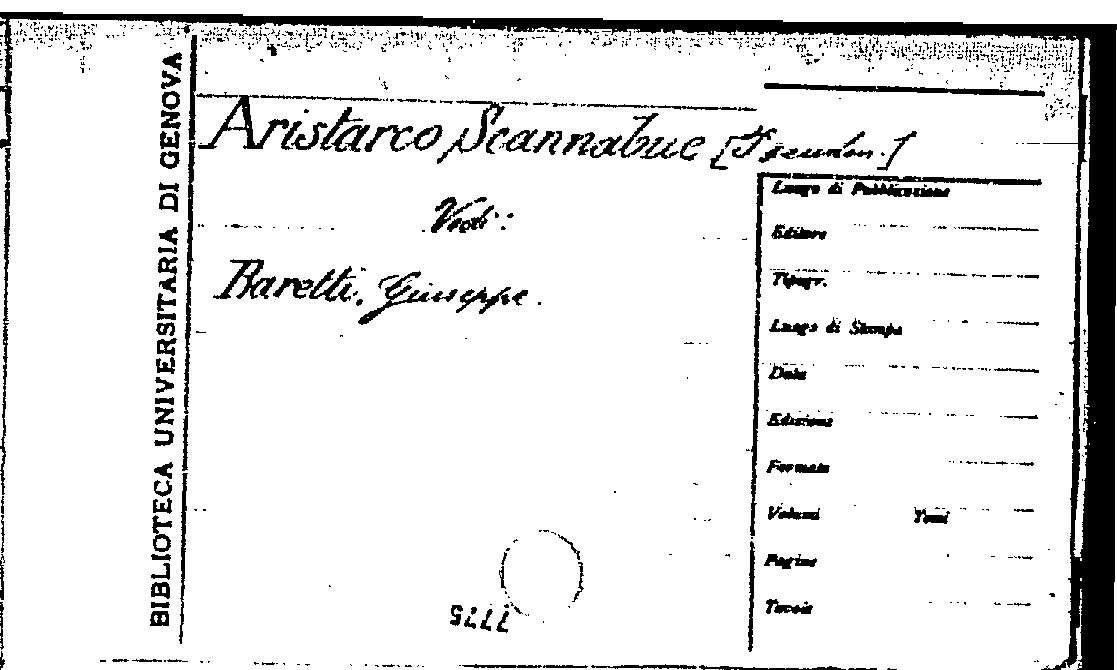 BIBLIOTECA UNIVERSITARIA DI GENOVA
Aristarco Scannabue [Pseudon.]
Vedi:
Baretti, Giuseppe.
Luogo di Pubblicazione
Editore
Tipogr.
Luogo di Stampa
Data
Edizione
Formato
Volumi Tomi
Pagine
Tavole
7775